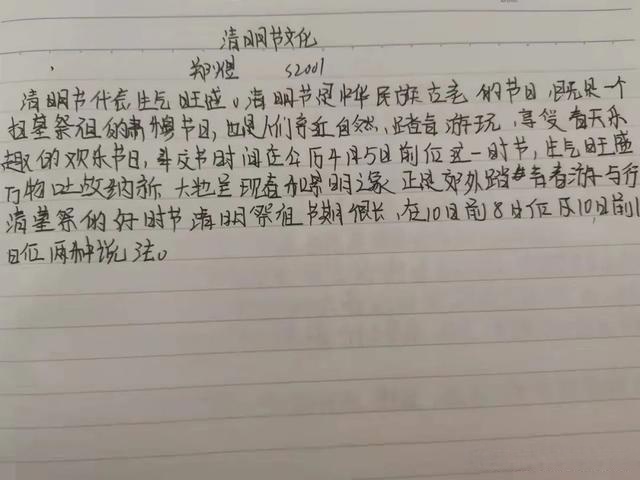 清明节文化
郑煜 S2001
清明节代表生气旺盛。清明节是中华民族古老的节日,既是一个
扫墓祭祖的肃穆节日,也是人们亲近自然、踏青游玩、享受春天乐
趣的欢乐节日,斗交节时间在公历4月5日前位这一时节,生气旺盛
万物吐故纳新 大地呈现春和景明之象 正是郊外踏青春游与行
清墓祭的好时节清明祭祖节期很长,在10日前8日位及10日前1
日位两种说法。